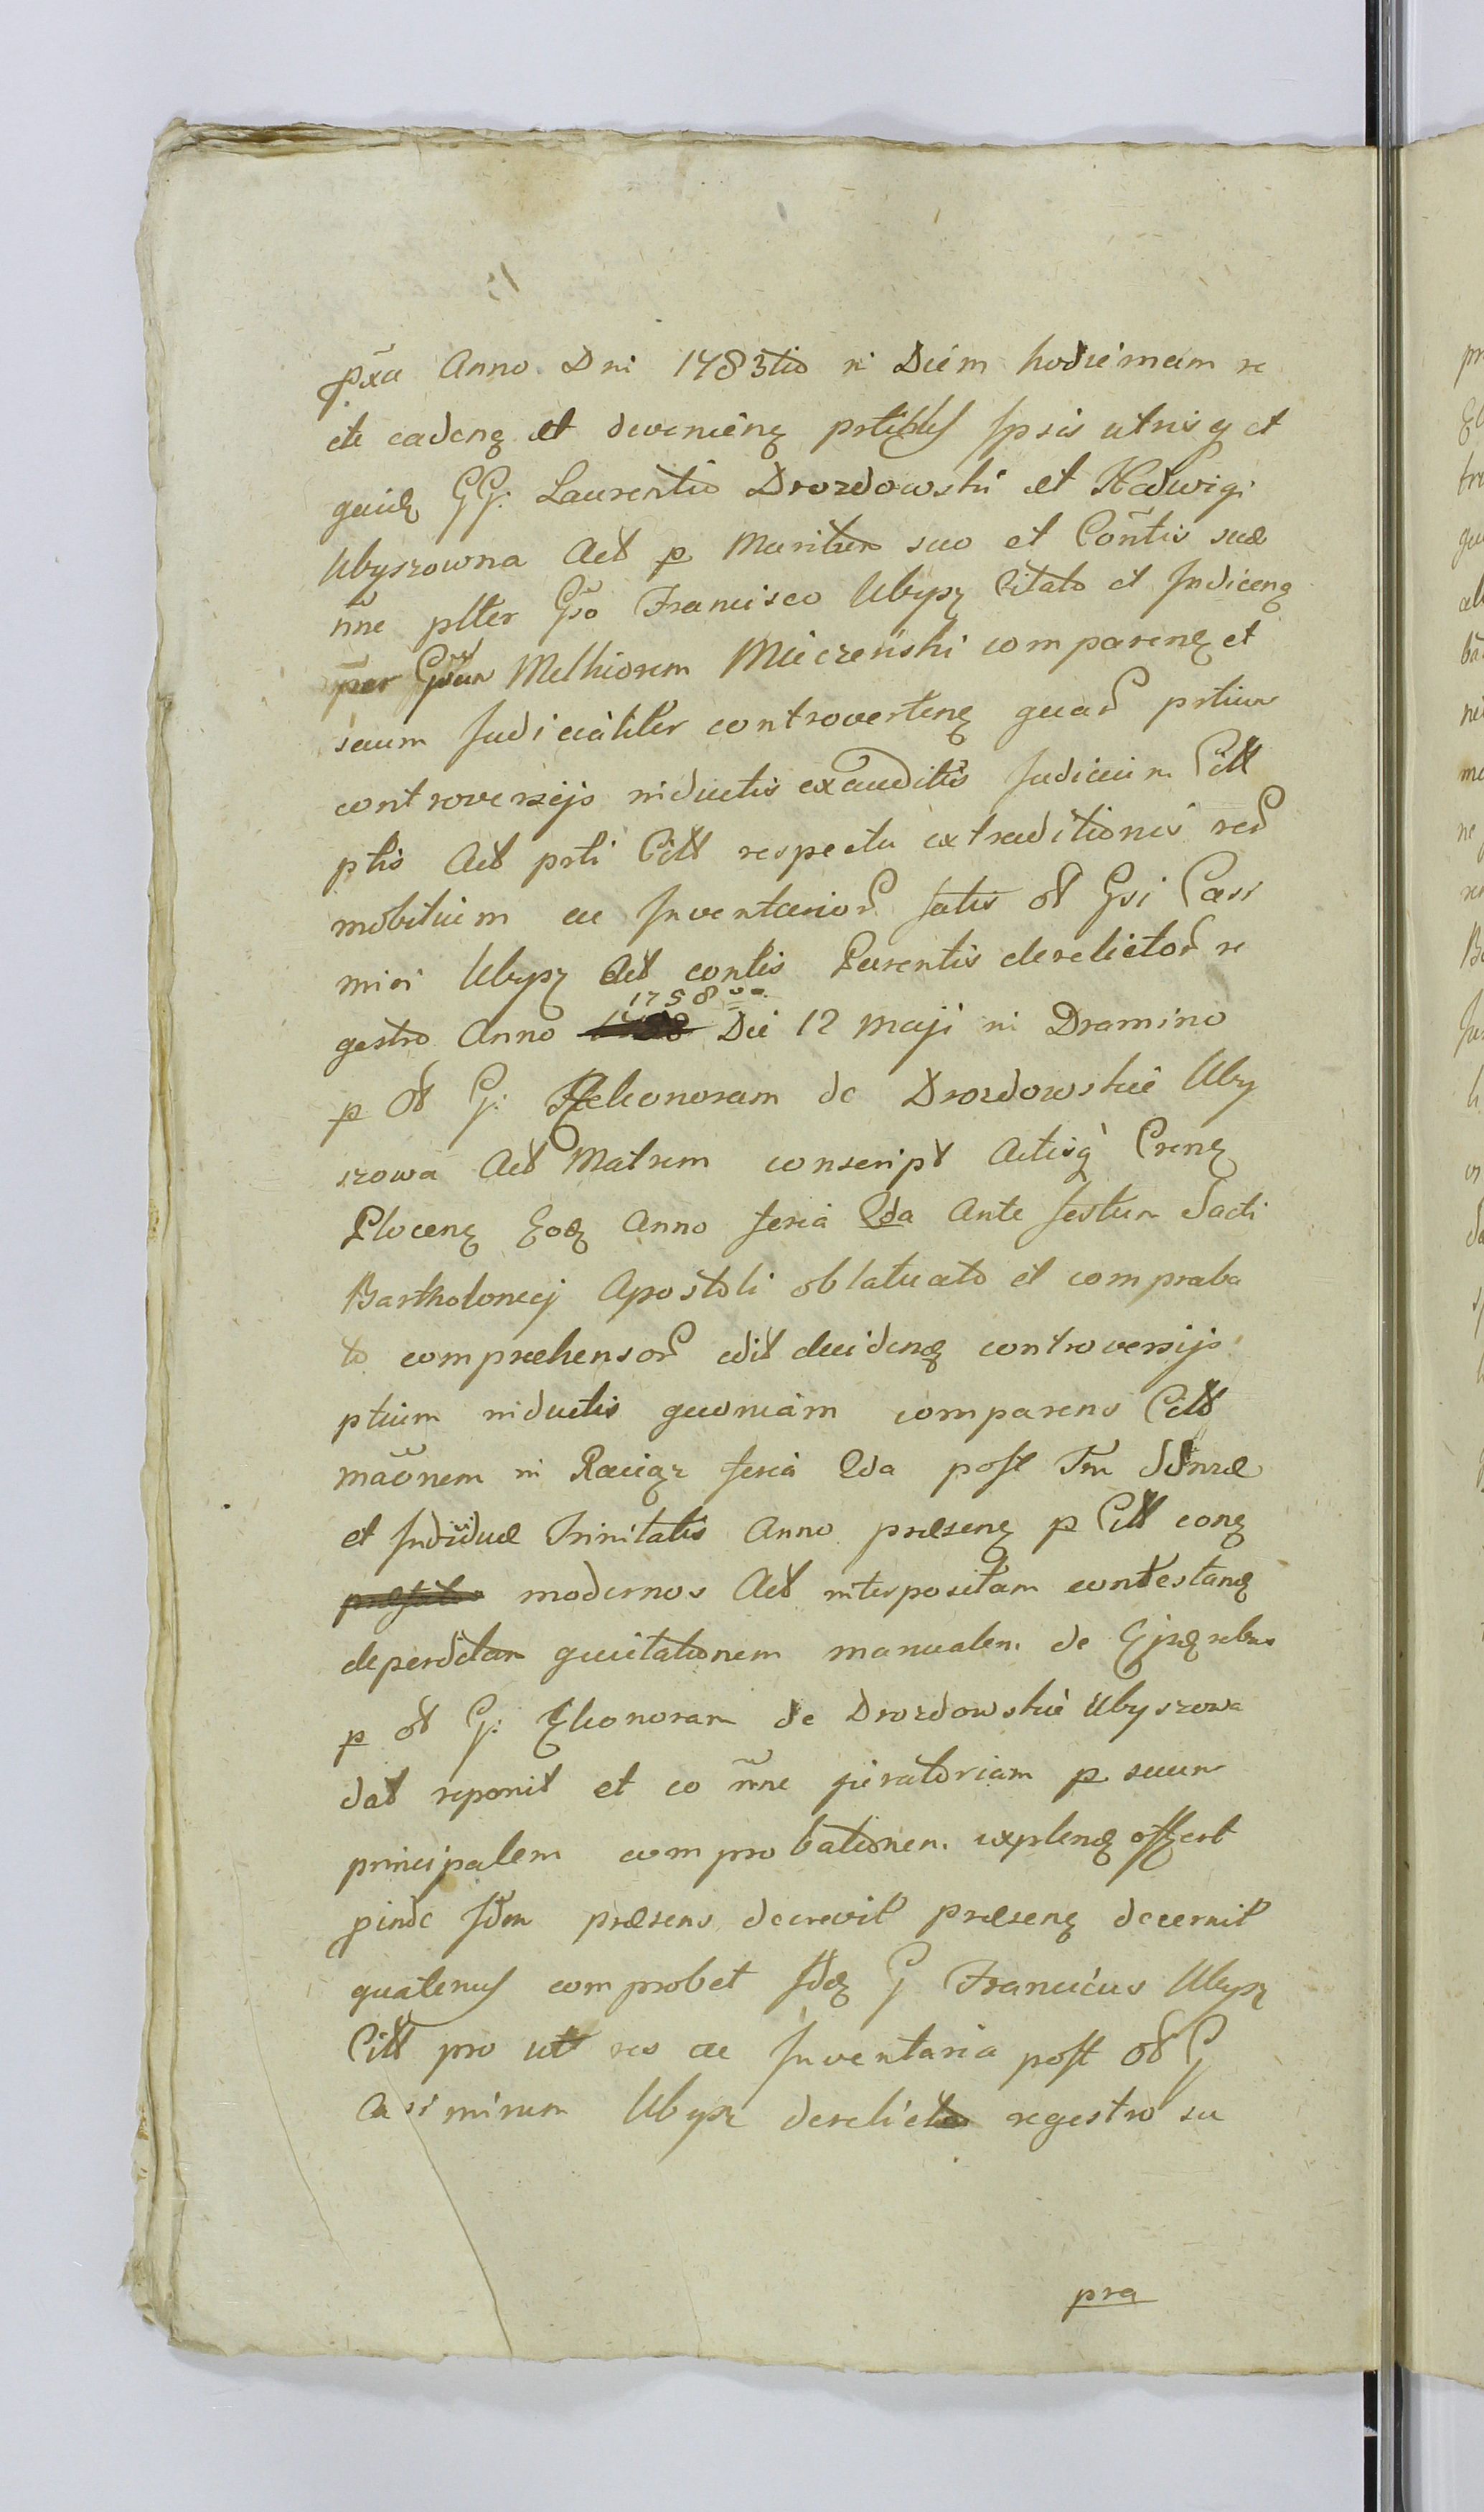 pxa Anno Dni 1783tio in Diem hodiernam re
cte cadenę et devenienę prtibus Ipsis utrisq et
quidę GG: Laurentio Drozdowski et Hedwigi
Ubyszowna Act p Maritum suo et Contis suæ
nne plter Gso Francisco Ubysz Citato et Judicenę
per Gsum Melhiorem Mieczeński comparenę et
seum Judicialiter controvertenę quar prtium
controversijs inductis exauditis Judicium Citt
ptis Act prti Citt respectu extraditionis rer
mobilium ac Inventarior fatis ol Gsi Casi
miri Ubysz Act contis Parentis derelictor re
gestro Anno 1758vo Die 12 maji in Dramino
p ol G: Eleonoram de Drozdowskie Uby
szowa Act Matrem conscript Actisq Crenę
Plocenę Eodę Anno feria 2da Ante festum Sacti
Bartholomej Apostoli oblatuato et comproba
to comprehensor edit decidenę controversijs
ptium inductis quoniam comparens Citt
maonem in Raciąz feria 2da post Fm SSmæ
et Individuæ Trinitatis Anno præsenę p Citt conę
modernos Act interpositam contestanę
deperditam quitationem manualem de Ejsdę rebus
p ol G: Eleonoram de Drozdowskie Ubyszowa
dat reponit et eo nne juratoriam p suum
principalem comprobationem explenę offert
pinde Idm præsens decrevit præsenę decernit
quatenus comprobet Idę G Franciscus Ubysz
Citt pro ut res ac Inventaria post ol G
Casimirum Ubysz derelicta regestro su
pra